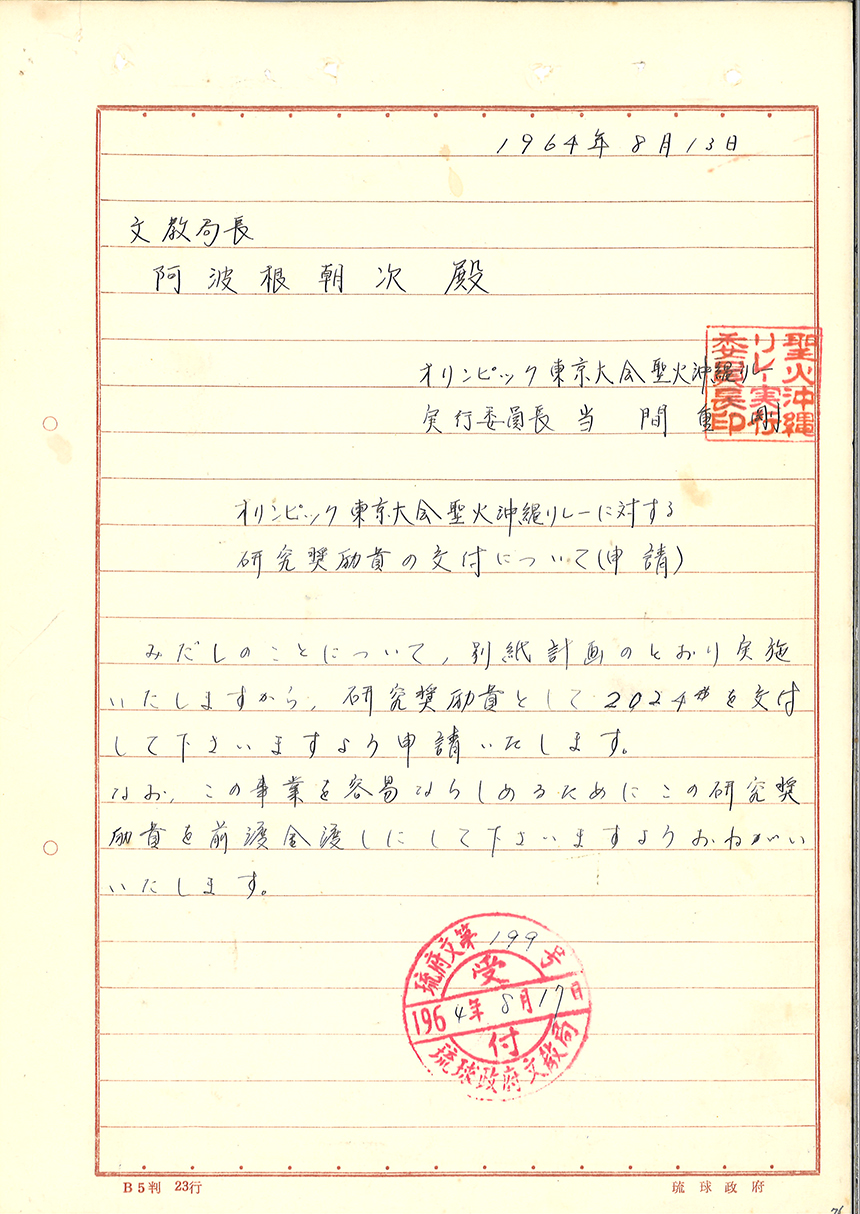 1964年8月13日
文教局長
阿波根朝次殿
オリンピック東京大会聖火沖縄リレー
実行委員長 当間重剛
聖火沖縄
リレー実行
委員長印
オリンピック東京大会聖火沖縄リレーに対する
研究奨励費の交付について(申請)
みだしのことについて、別紙計画のとおり実施
いたしますから、研究奨励費として2024弗を交付
して下さいますよう申請いたします。
なお、この事業を容易ならしめるためにこの研究奨
励費を前渡金渡しにして下さいますようおねがい
いたします。
琉府文第199号
受
1964年8月17日
付
琉球政府文教局
B5判 23行
琉球政府